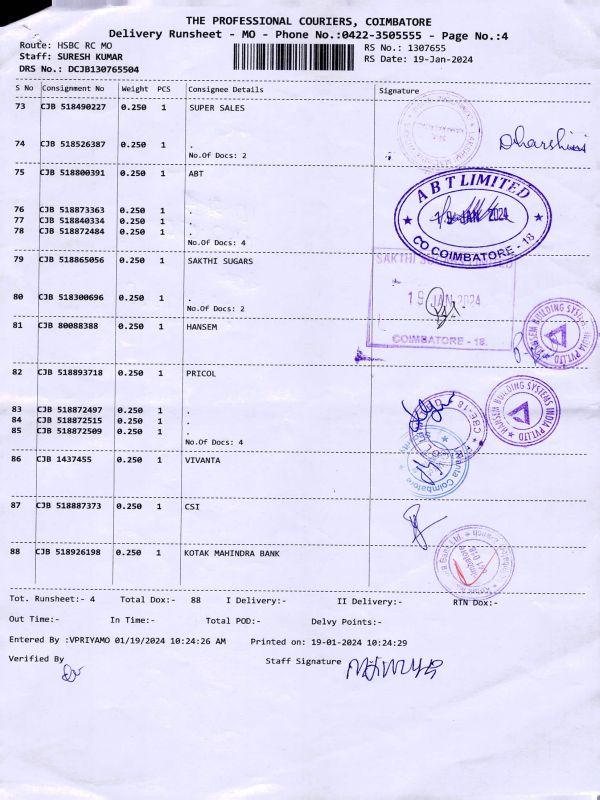 THE PROFESSIONAL COURIERS, COIMBATORE
Delivery Runsheet - MO - Phone No.:0422-3505555 - Page No.:4
Route: HSBC RC MO
RS No.: 1307655
Staff: SURESH KUMAR
RS Date: 19-Jan-2024
DRS No.: DCJB130765504
S No Consignment No Weight PCS Consignee Details Signature
73 CJB 518490227 0.250 1 SUPER SALES
Dharshini
74 CJB 518526387 0.250 1 .
No.Of Docs: 2
75 CJB 518800391 0.250 1 ABT
ABT LIMITED
19 JAN 2024
CO COIMBATORE - 18
76 CJB 518873363 0.250 1 .
77 CJB 518840334 0.250 1 .
78 CJB 518872484 0.250 1 .
No.Of Docs: 4
79 CJB 518865056 0.250 1 SAKTHI SUGARS
SAKTHI SUGARS LIMITED
19 JAN 2024
COIMBATORE - 18.
80 CJB 518300696 0.250 1 .
No.Of Docs: 2
81 CJB 80088388 0.250 1 HANSEM
HANSEM BUILDING SYSTEMS INDIA PVT.LTD
82 CJB 518893718 0.250 1 PRICOL
HANSEM BUILDING SYSTEMS INDIA PVT.LTD
83 CJB 518872497 0.250 1 .
84 CJB 518872515 0.250 1 .
85 CJB 518872509 0.250 1 .
No.Of Docs: 4
CBE-18
86 CJB 1437455 0.250 1 VIVANTA
Vivanta Coimbatore
87 CJB 518887373 0.250 1 CSI
88 CJB 518926198 0.250 1 KOTAK MAHINDRA BANK
Tot. Runsheet:- 4 Total Dox:- 88 I Delivery:- II Delivery:- RTN Dox:-
Out Time:- In Time:- Total POD:- Delvy Points:-
Entered By :VPRIYAMO 01/19/2024 10:24:26 AM Printed on: 19-01-2024 10:24:29
Verified By Staff Signature